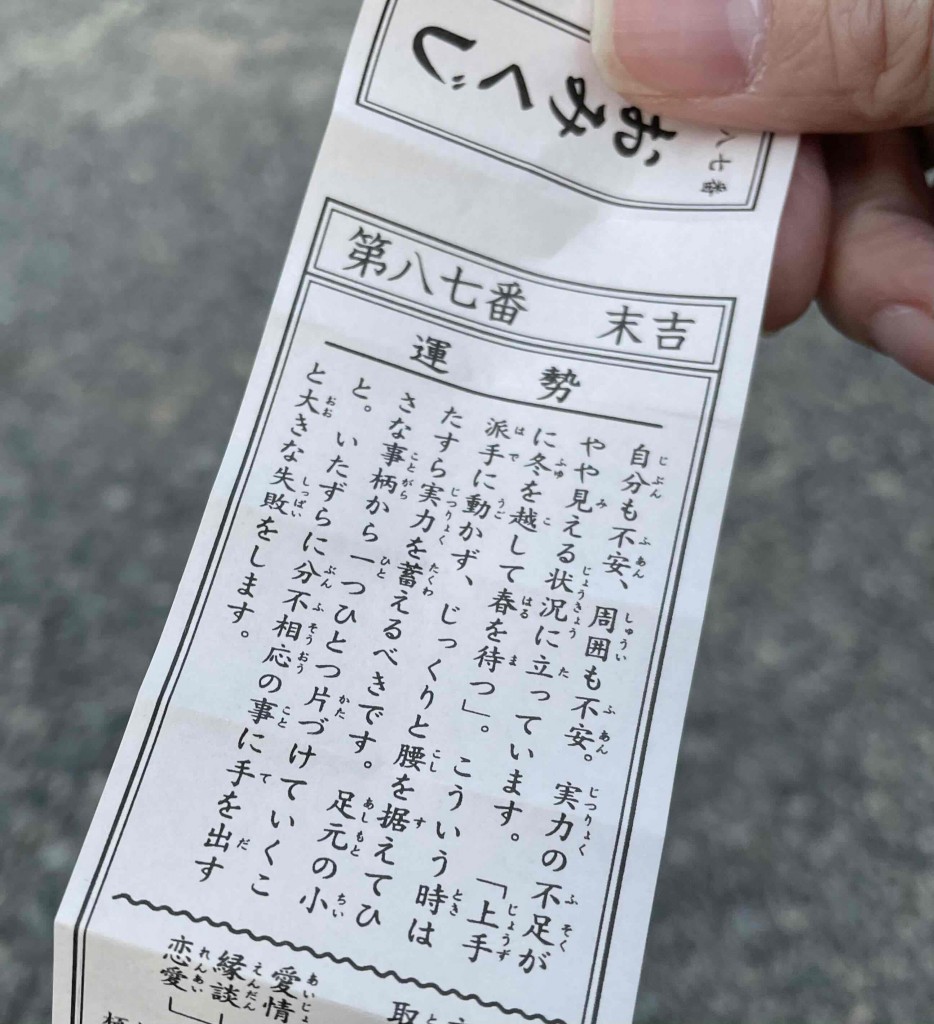 おみくじ
七番
第八七番 末吉
運勢
自分も不安、周囲も不安。実力の不足が
やや見える状況に立っています。「上手
に冬を越して春を待つ」。こういう時は
派手に動かず、じっくりと腰を据えてひ
たすら実力を蓄えるべきです。足元の小
さな事柄から一つひとつ片づけていくこ
と。いたずらに分不相応の事に手を出す
と大きな失敗をします。
取
愛情
縁談
恋愛